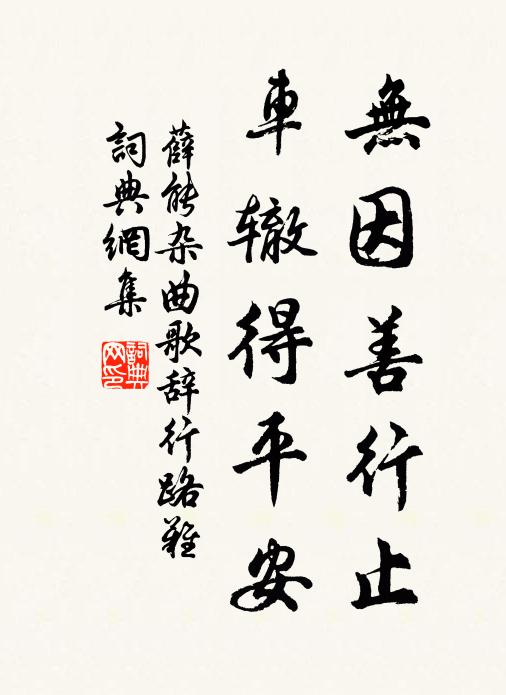 無因善行止
車辙得平安
薛能杂曲歌辞行路難
詞典網集
詞典网印